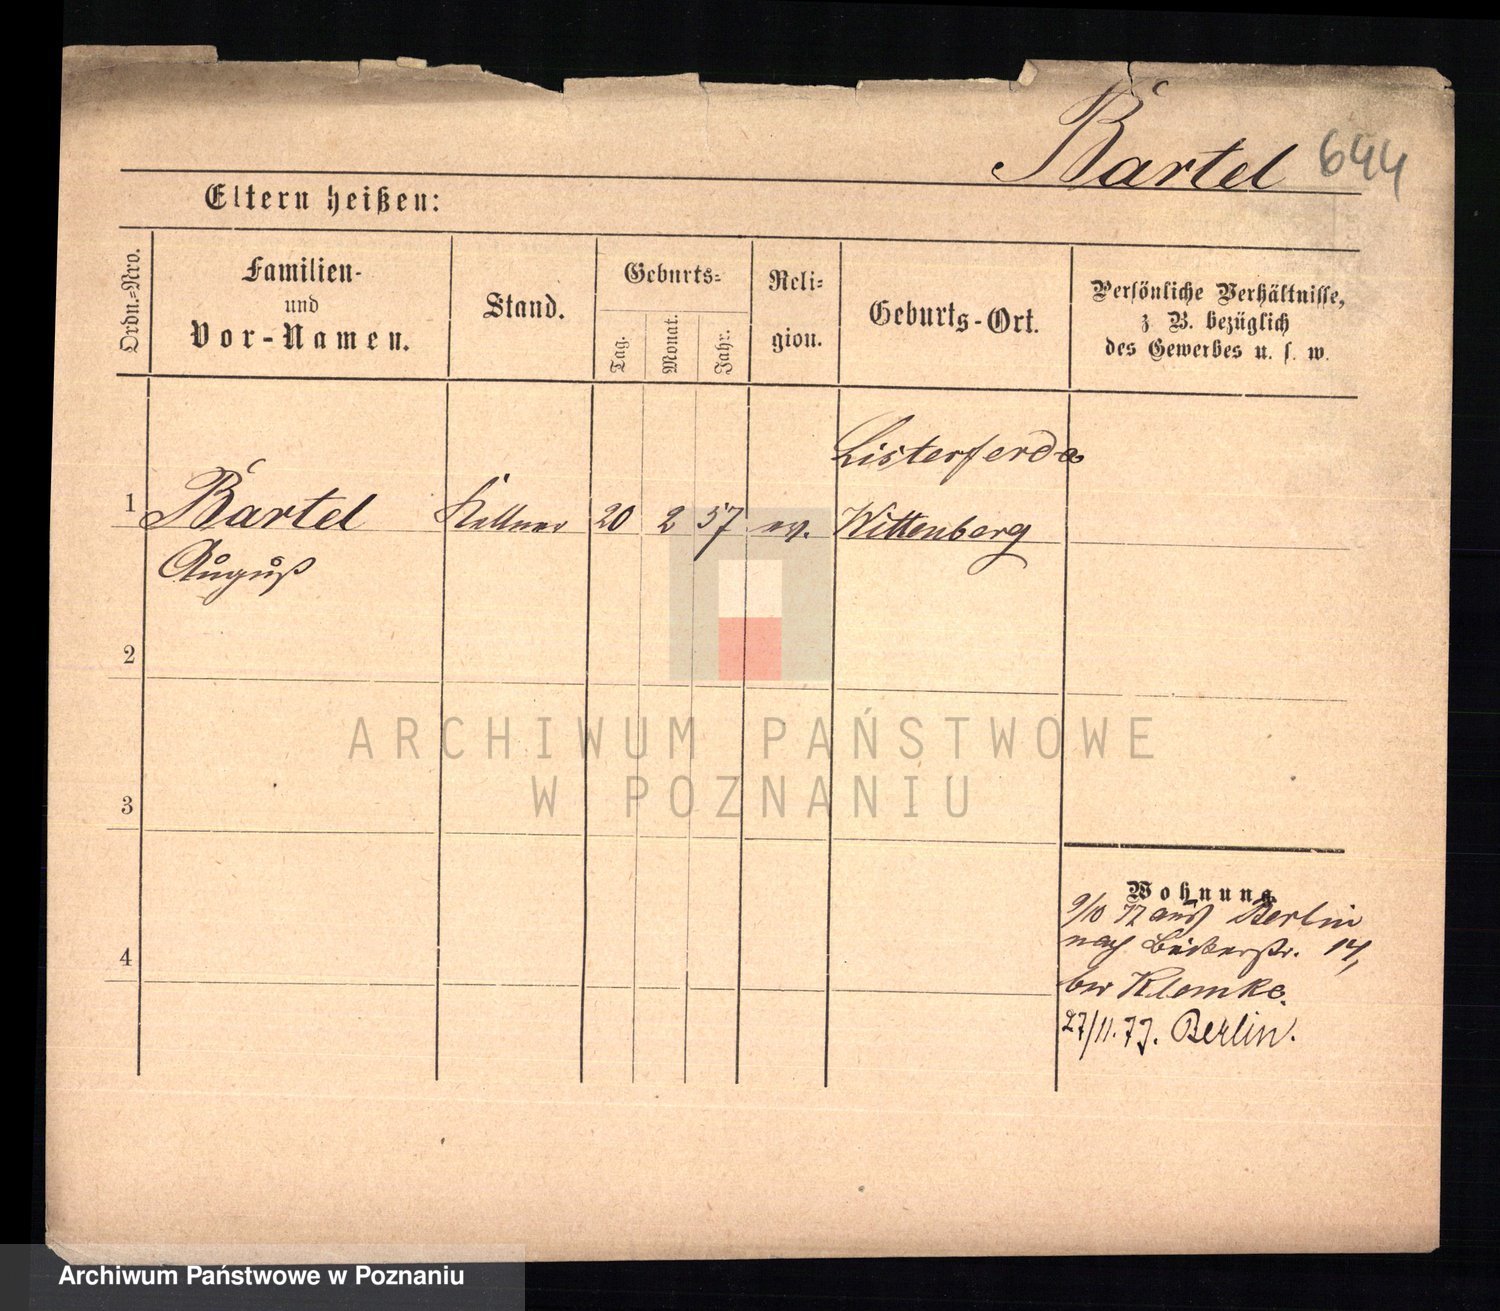 Bartel 644
Eltern heißen:
Ordn.-Nro.
Familien-
und
Vor-Namen.
Stand.
Geburts-
Tag.
Monat.
Jahr.
Reli-
gion.
Geburts-Ort.
Persönliche Verhältnisse,
z B. bezüglich
des Gewerbes u. s. w.
Listerferda
1 Bartel Kellner 20 2 57 ev. Wittenberg
August
2
3
4
Wohnung
9/10 77 aus Berlin
nach Bäckerstr. 14,
bei Klemke.
27/11.77. Berlin.
ARCHIWUM PAŃSTWOWE
W POZNANIU
Archiwum Państwowe w Poznaniu